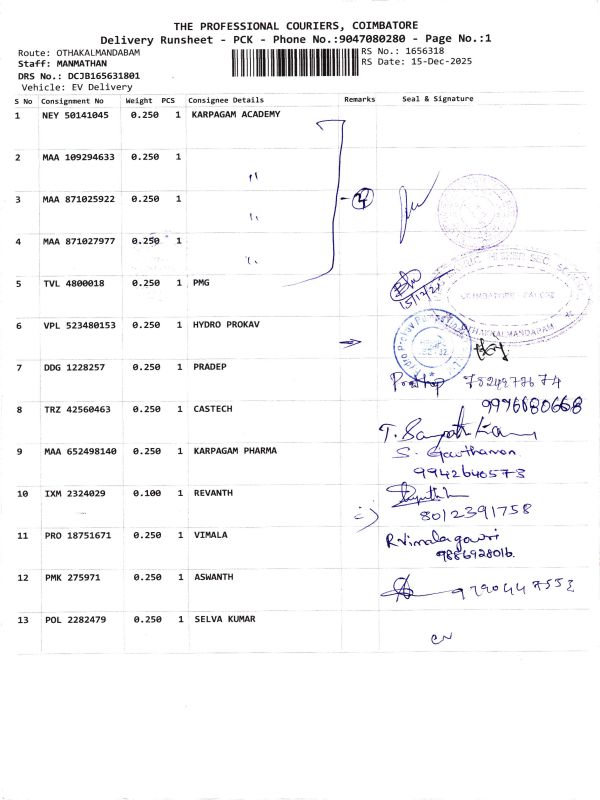 THE PROFESSIONAL COURIERS, COIMBATORE
Delivery Runsheet - PCK - Phone No.:9047080280 - Page No.:1
Route: OTHAKALMANDABAM
RS No.: 1656318
Staff: MANMATHAN
RS Date: 15-Dec-2025
DRS No.: DCJB165631801
Vehicle: EV Delivery
S No Consignment No Weight PCS Consignee Details Remarks Seal & Signature
1 NEY 50141045 0.250 1 KARPAGAM ACADEMY
2 MAA 109294633 0.250 1 "
3 MAA 871025922 0.250 1 " 4
4 MAA 871027977 0.250 1 "
5 TVL 4800018 0.250 1 PMG
COIMBATORE
OTHAKALMANDAPAM
6 VPL 523480153 0.250 1 HYDRO PROKAV
7 DDG 1228257 0.250 1 PRADEP
8 TRZ 42560463 0.250 1 CASTECH 9976680668
9 MAA 652498140 0.250 1 KARPAGAM PHARMA S. Gowthaman
9942640573
10 IXM 2324029 0.100 1 REVANTH
8012391758
11 PRO 18751671 0.250 1 VIMALA R.Vimalagowri
9886928016.
12 PMK 275971 0.250 1 ASWANTH
9790447552
13 POL 2282479 0.250 1 SELVA KUMAR